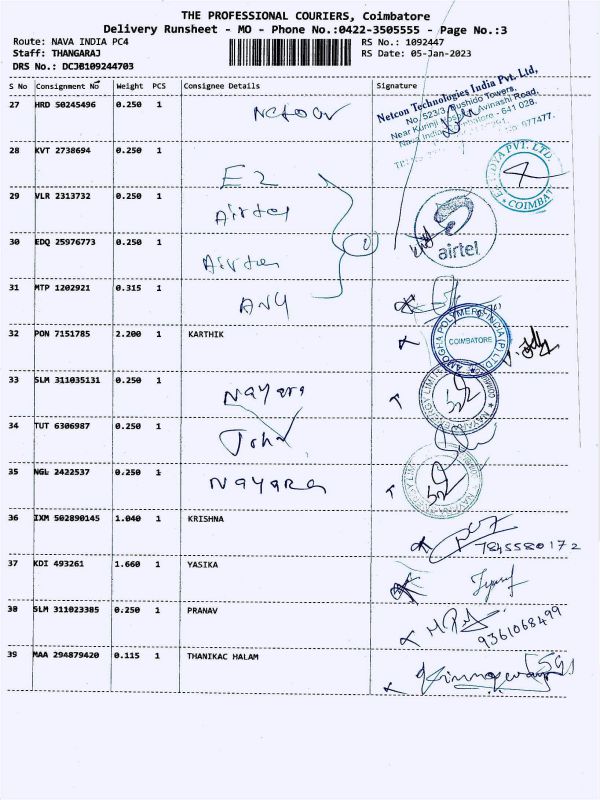 THE PROFESSIONAL COURIERS, Coimbatore
Delivery Runsheet - MO - Phone No.:0422-3505555 - Page No.:3
Route: NAVA INDIA PC4 RS No.: 1092447
Staff: THANGARAJ RS Date: 05-Jan-2023
DRS No.: DCJB109244703
S No Consignment No Weight PCS Consignee Details Signature
27 HRD S0245496 0.250 1
Netcon Technologies India Pvt. Ltd,
No. 523/3, Bushido Towers,
Avinashi Road,
641 028.
28 KVT 2738694 0.250 1 E2
COIMBAT
29 VLR 2313732 0.250 1 Airtel
airtel
30 EDQ 25976773 0.250 1 Airtel
31 MTP 1202921 0.315 1
32 PON 7151785 2.200 1 KARTHIK
AMOGHA POLYMERS INDIA (P) LTD
COIMBATORE
33 SLM 311035131 0.250 1 Nayara
34 TUT 6306987 0.250 1
35 NGL 2422537 0.250 1 Nayara
36 IXM 502890145 1.040 1 KRISHNA
7845580172
37 KDI 493261 1.660 1 YASIKA
38 SLM 311023385 0.250 1 PRANAV
9361068499
39 MAA 294879420 0.115 1 THANIKAC HALAM